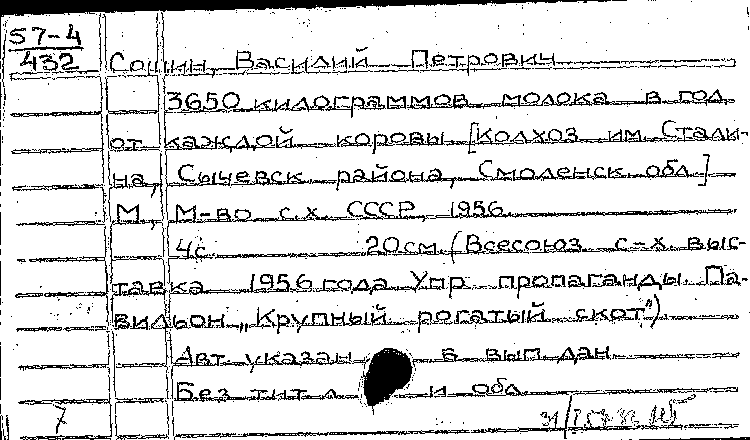 57-4
432
Сошин, Василий Петрович
3650 килограммов молока в год
от каждой коровы [Колхоз им. Стали-
на, Сычевск. района, Смоленск. обл.]
М., М-во с.х. СССР, 1956.
4с. 20см. (Всесоюз. с-х. выс-
тавка 1956 года. Упр. пропаганды. Па-
вильон „Крупный рогатый скот")
Авт. указан в вып. дан.
Без тит. л. и обл.
7